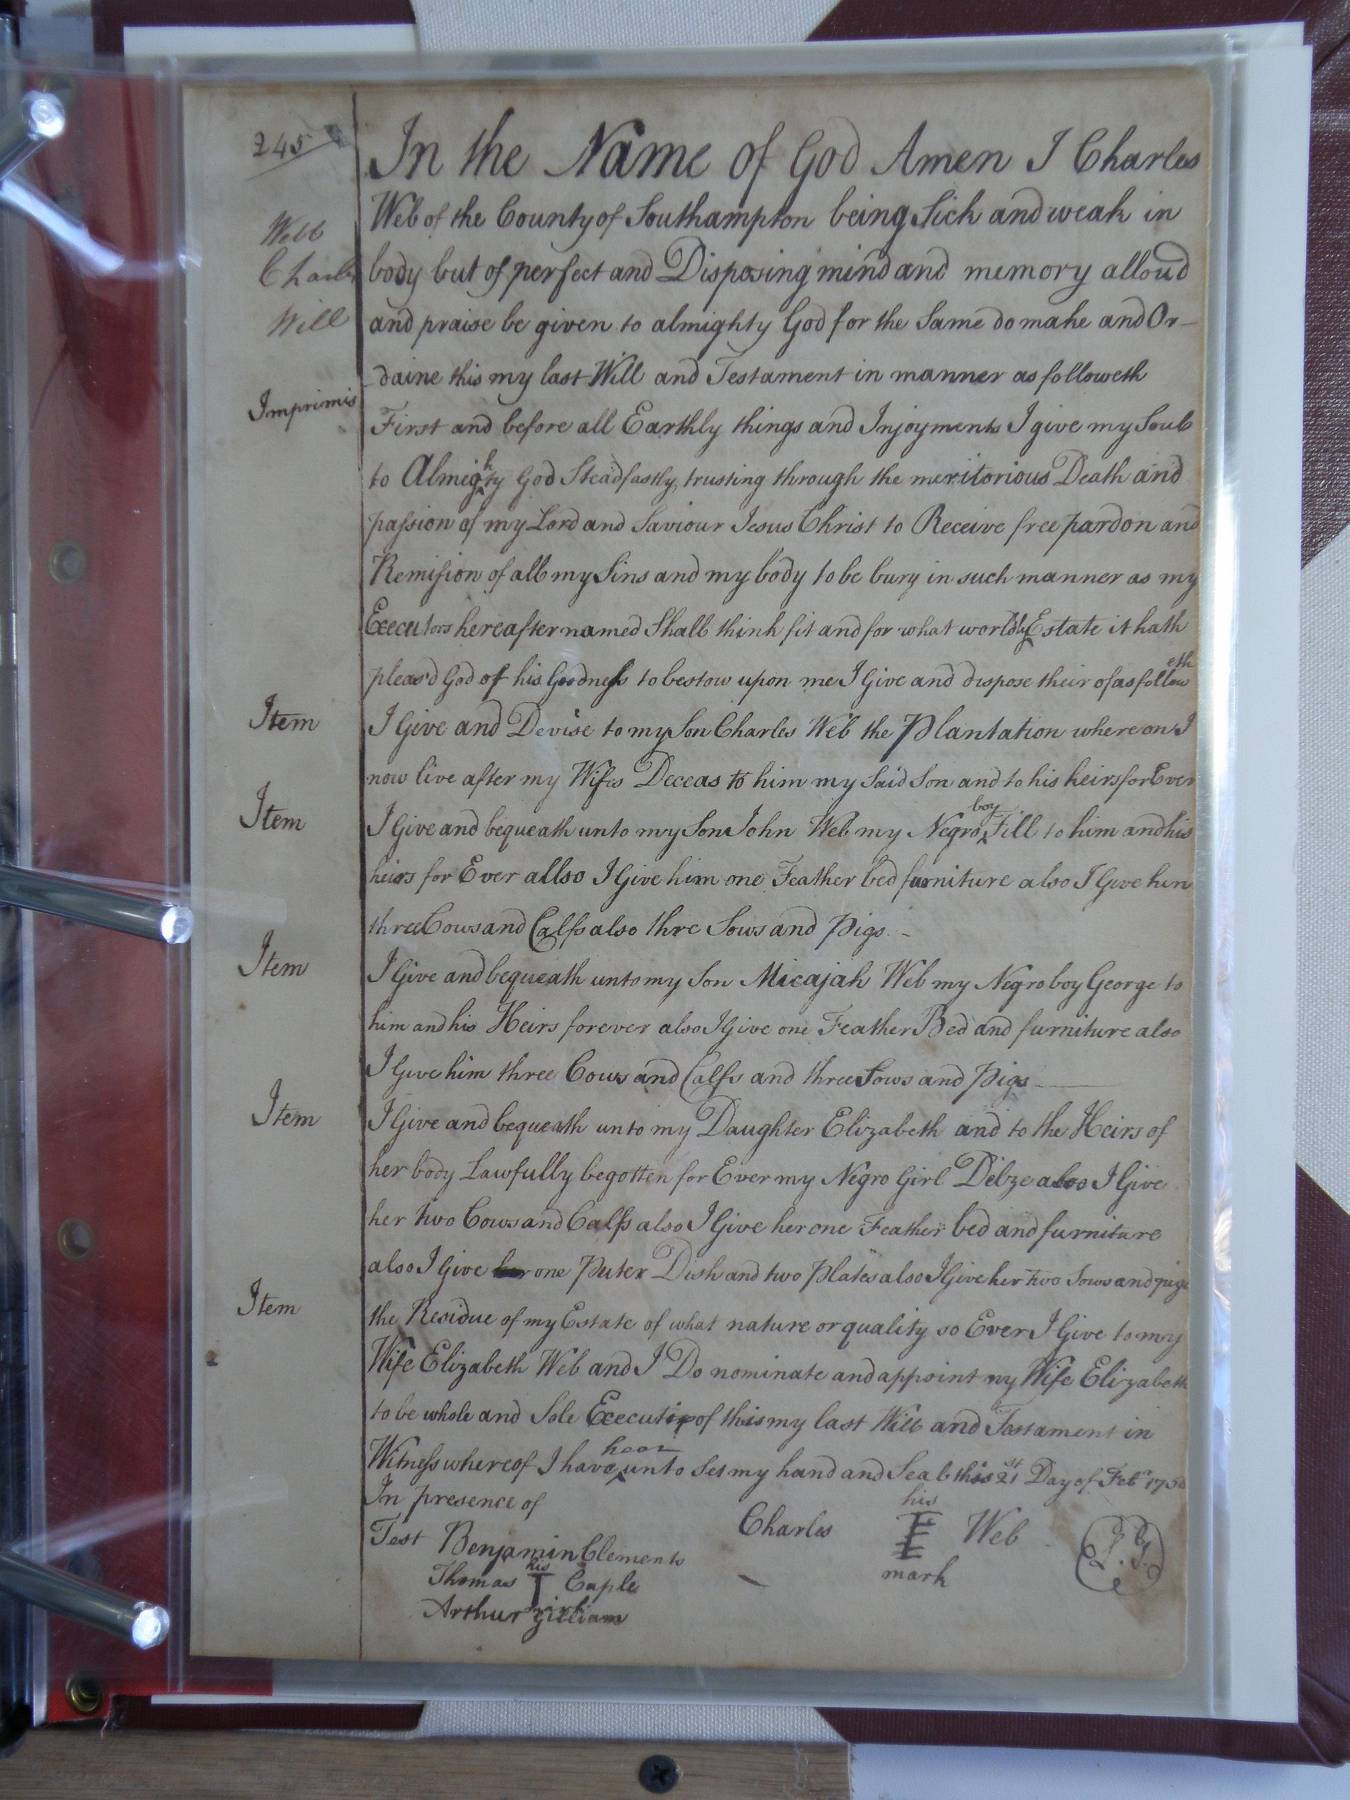 245
In the Name of God Amen I Charles
Web of the County of Southampton being Sick and weak in
Webb
Charles
Will
body but of perfect and Disposing mind and memory alloud
and praise be given to almighty God for the Same do make and Or-
daine this my last Will and Testament in manner as followeth
Imprimis
First and before all Earthly things and Injoyments I give my Soul
to Almighty God Steadfastly trusting through the meritorious Death and
passion of my Lord and Saviour Jesus Christ to Receive free pardon and
Remision of all my Sins and my body to be bury in such manner as my
Executors hereafter named Shall think fit and for what worldly Estate it hath
pleasd God of his Goodness to bestow upon me I Give and dispose their of as followeth
Item I Give and Devise to my Son Charles Web the Plantation where on I
now live after my Wifes Deceas to him my Said Son and to his heirs for Ever
Item I Give and bequeath unto my Son John Web my Negro boy Till to him and his
heirs for Ever allso I Give him one Feather bed furniture also I Give him
three Cows and Calfs also thre Sows and Pigs
Item I Give and bequeath unto my Son Micajah Web my Negro boy George to
him and his Heirs forever also I Give one Feather Bed and furniture also
I Give him three Cows and Calfs and three Sows and Pigs
Item I Give and bequeath unto my Daughter Elizabeth and to the Heirs of
her body Lawfully begotten for Ever my Negro Girl Debze also I Give
her two Cows and Calfs also I Give her one Feather bed and furniture
also I Give her one Puter Dish and two Plates also I Give her two Sows and pigs
Item the Residue of my Estate of what nature or quality so Ever I Give to my
Wife Elizabeth Web and I Do nominate and appoint my Wife Elizabeth
to be whole and Sole Executix of this my last Will and Testament in
Witness whereof I have hear unto Set my hand and Seal this 21st Day of Feb 1750
In presence of
Test Benjamin Clements
Charles his mark Web L.S.
Thomas his T mark Caple
Arthur Gilliam